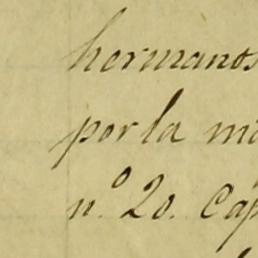 hermanos
por la m
n.º 20. Cap